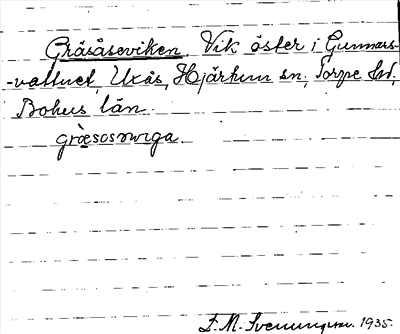 Gräsåseviken. Vik öster i Gunnars-
-vattnet, Uxås, Hjärtum sn, Torpe hd,
Bohus län.
græsosəviga.
F. M. Svenungsson. 1935.